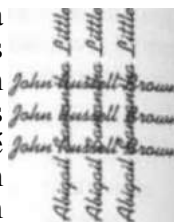 John Russell Brown
John Russell Brown
John Russell Brown
Abigail Little
Abigail Little
Abigail Little